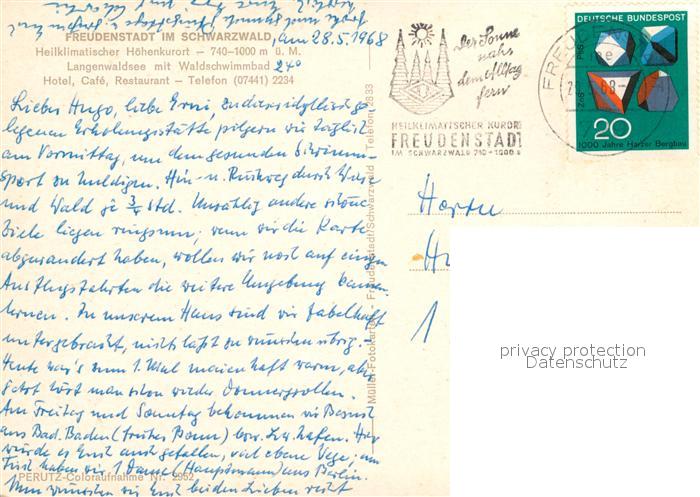 FREUDENSTADT IM SCHWARZWALD
am 28.5.1968
Heilklimatischer Höhenkurort – 740–1000 m ü. M.
Langenwaldsee mit Waldschwimmbad 24°
Hotel, Café, Restaurant – Telefon (07441) 2234
Lieber Hugo, liebe Erni, zu dieser idyllisch ge-
legenen Erholungsstätte pilgern wir täglich
am Vormittag, um dem gesunden Schwimm-
sport zu huldigen. Hin- u. Rückweg durch Wiese
und Wald je 3/4 Std. Unzählig andere schöne
Ziele liegen ringsum; wenn wir die Karte
abgewandert haben, wollen wir noch auf einigen
Ausflugsfahrten die weitere Umgebung kennen
lernen. In unserem Haus sind wir fabelhaft
untergebracht, nichts läßt zu wünschen übrig. –
Heute war's zum 1. Mal maienhaft warm, aber
jetzt hört man schon wieder Donnergrollen.
Am Freitag und Sonntag bekommen wir Besuch
aus Bad. Baden bzw. L'hafen. Hier
würde es Euch auch gefallen, viel ebene Wege; am
Tisch haben wir 1 Dame (Hauptmann) aus Berlin.
Nun wünschen wir Euch beiden Lieben recht
PERUTZ-Coloraufnahme Nr. 2952
Müller-Fotokarten – Freudenstadt/Schwarzwald – Telefon 2833
Der Sonne
nah
dem Alltag
fern
HEILKLIMATISCHER KURORT
FREUDENSTADT
IM SCHWARZWALD 740-1000 m
DEUTSCHE BUNDESPOST
20
1000 Jahre Harzer Bergbau
1
privacy protection
Datenschutz